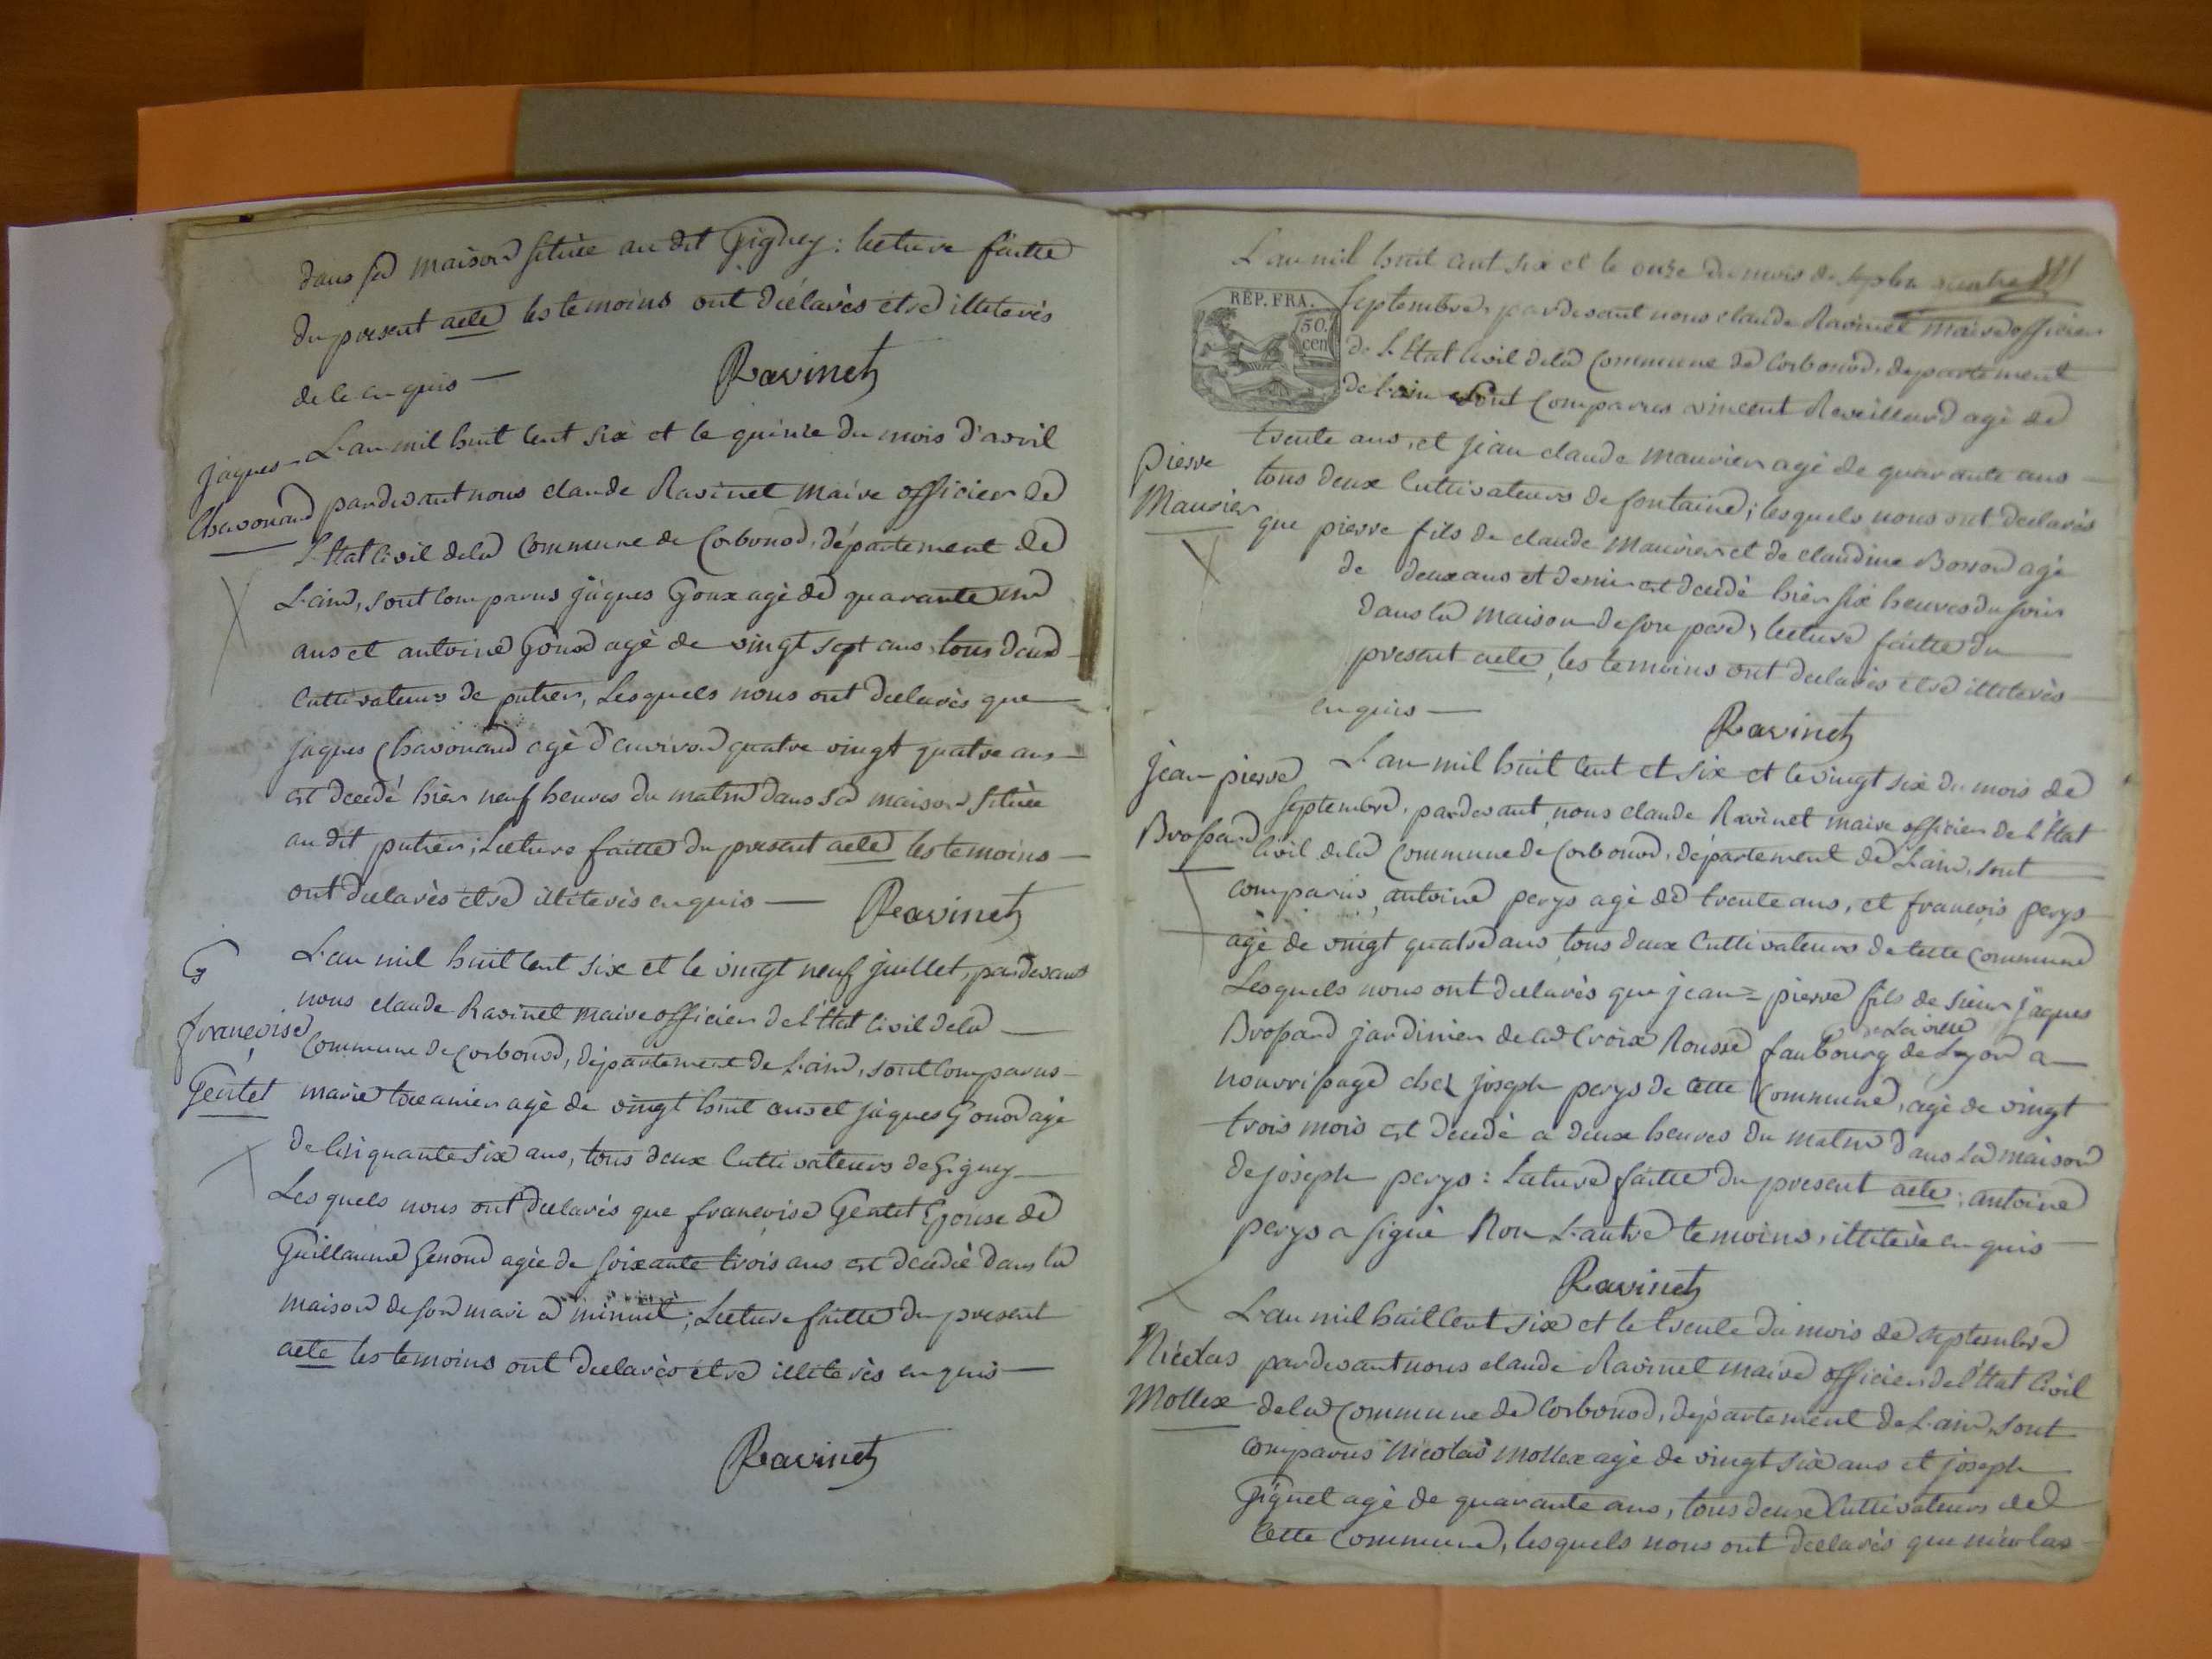 dans sa maison située au dit Gigney : lecture faitte
du present acte les temoins ont déclarés etre illiterés
de ce enquis —
Ravinet
Jaques
Chavonand
L'an mil huit cent six et le quinze du mois d'avril
pardevant nous claude Ravinet maire officier de
L'Etat Civil de la Commune de Corbonod, département de
L'ain, sont comparus jâques Goux agé de quarante un
ans et antoine Goux agé de vingt sept ans, tous deux
Cultivateurs de putier, Lesquels nous ont declarés que
jaques Chavonand agé d'environ quatre vingt quatre ans —
est decedé hièr neuf heures du matin dans sa maison située
au dit putier ; Lecture faitte du present acte les temoins —
ont declarés etre illiterés enquis —
Ravinet
G
françoise
Gentet
L'an mil huit cent six et le vingt neuf juillet, pardevant
nous claude Ravinet maire officier de l'Etat Civil de la —
Commune de Corbonod, département de L'ain, sont comparus —
marie agé de vingt huit ans et jâques Gonod agé
de Cinquante six ans, tous deux Cultivateurs de Gigney —
Lesquels nous ont declarés que françoise Gentet Epouse de
Guillaume Genond agée de soixante trois ans est decedée dans la
maison de son mari a minuit ; Lecture faitte du present
acte les temoins ont declarés etre illiterés enquis —
Ravinet
L'an mil huit cent six et le onze du mois de septbre
REP. FRA.
50.
cen
Septembre, pardevant nous claude Ravinet maire officier
de L'Etat Civil de la Commune de Corbonod, departement
de L'ain sont Comparus vincent Reveillard agé de
trente ans, et jean claude maurier agé de quarante ans —
pierre
Maurier
tous deux Cultivateurs de fontaine ; lesquels nous ont declarés
que pierre fils de claude maurier et de claudine Borron agé
de deux ans et demi est decedé hièr six heures du soir
dans la maison de son pere, lecture faitte du —
present acte, les temoins ont declarés etre illiterés —
enquis —
Ravinet
jean-pierre
Brossard
L'an mil huit cent et six et le vingt six du mois de
septembre, pardevant nous claude Ravinet maire officier de L'Etat
Civil de la Commune de Corbonod, département de L'ain, sont —
comparus antoine perys agé de trente ans, et françois perys
agé de vingt quatre ans tous deux Cultivateurs de cette Commune
Lesquels nous ont declarés que jean-pierre fils de sieur jaques
Brossard jardinier de la Croix Rousse faubourg de Lyon a —
nourrissage chez joseph perys de cette Commune, agé de vingt
trois mois est decedé a deux heures du matin dans la maison
de joseph perys : Lecture faitte du present acte ; antoine
perys a signé Non L'autre temoins, illiteré enquis —
Ravinet
Nicolas
Mollex
L'an mil huit cent six et le trente du mois de septembre
pardevant nous claude Ravinet maire officier de l'Etat Civil
de la Commune de Corbonod, département de L'ain, sont
comparus Nicolas mollex agé de vingt six ans et joseph
Giguet agé de quarante ans, tous deux Cultivateurs de
Cette Commune, lesquels nous ont declarés que nicolas